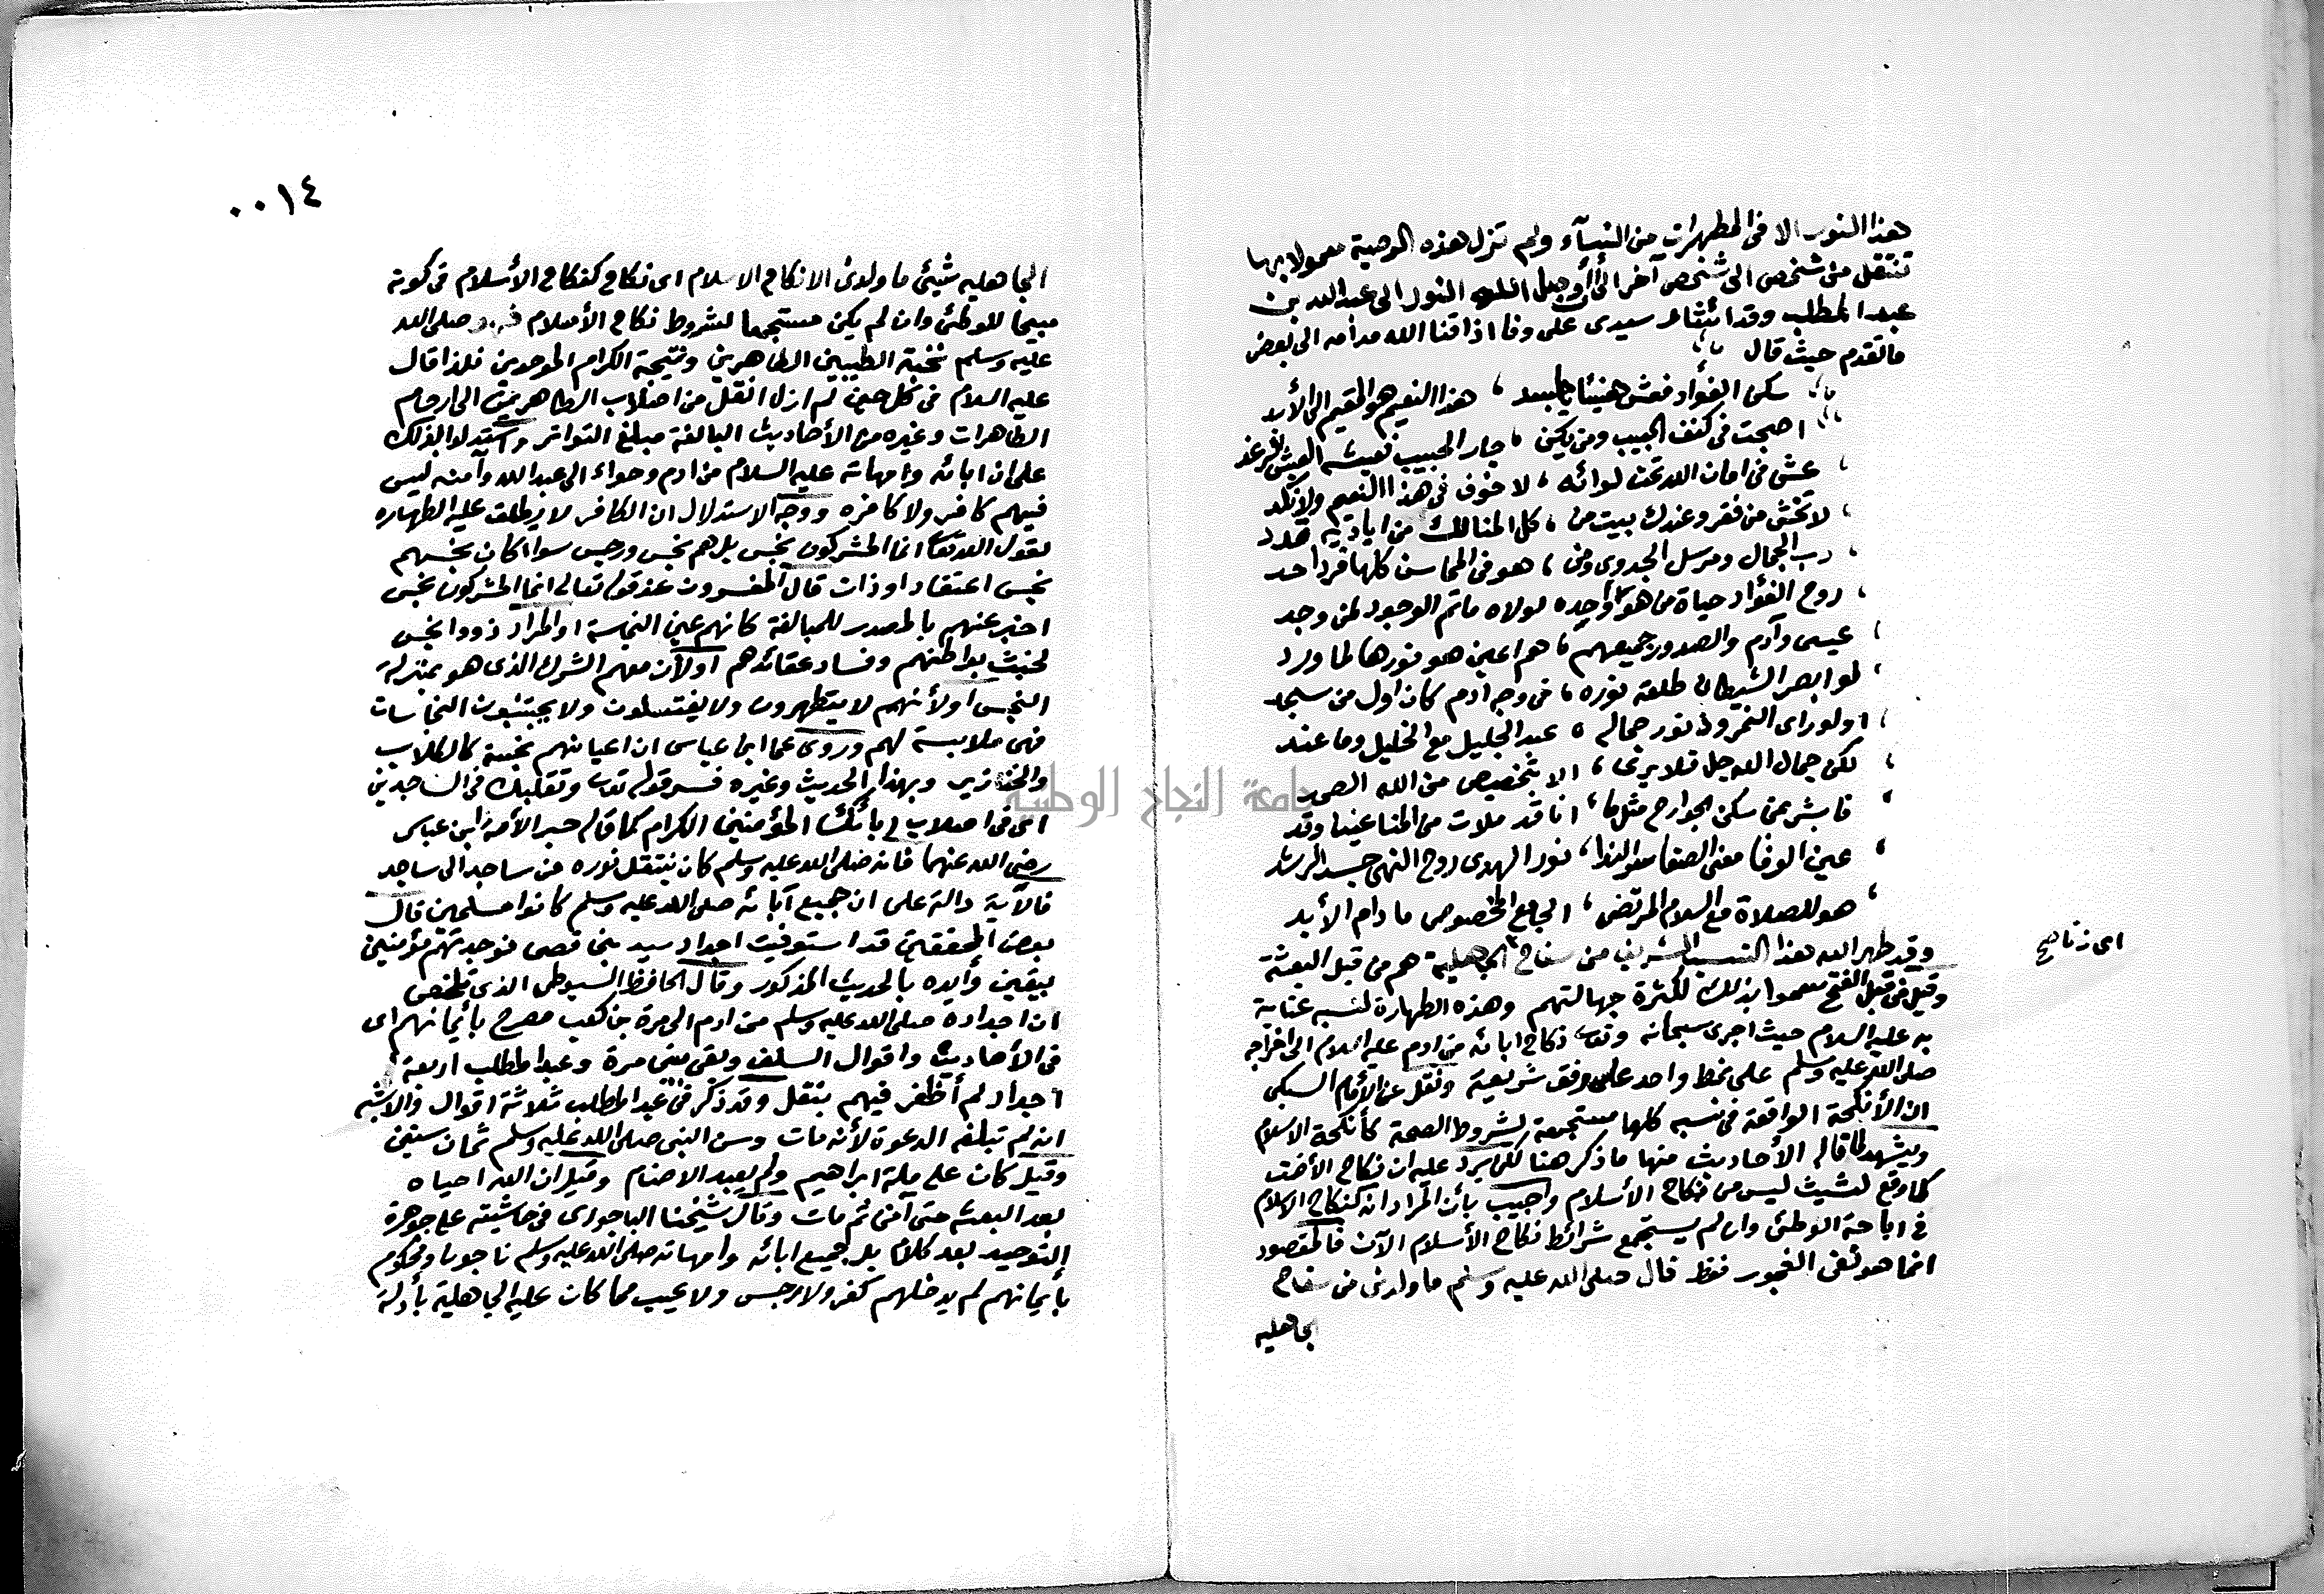 هذا النور الا في المطهرات من النسآء ولم تزل هذه الوصية معمولا بها
تنتقل من شخص الى شخص آخر الى أن أوصل الله النور الى عبد الله بن
عبد المطلب وقد انشد سيدى على وفا اذاقنا الله مدامه الى بعض
ما تقدم حيث قال
سكن الفؤاد فعش هنيئا يا جسد ، هذا النعيم هو المقيم الى الأبد
اصبحت في كنف الحبيب ومن يكن ، جار الحبيب فعيشه العيش الرغد
عش في امان الله تحت لوائه ، لا خوف في هذا النعيم ولا نكد
لا تخش من فقر وعندك بيت من ، كل المنا لك من اياديه مدد
رب الجمال ومرسل الجدوى ومن ، هو في المحاسن كلها فرد احد
روح الفؤاد حياة من هو واجد ، لولاه ماتم الوجود لمن وجد
عيسى وآدم والصدور جميعهم ، هم اعين هو نورها لما ورد
لو ابصر الشيطان طلعة نوره ، في وجه ادم كان اول من سجد
اولو راى النمروذ نور جماله ، عبد الجليل مع الخليل وما عند
لكن جمال الله جل فلا يرى ، الا بتخصيص من الله الصمد
فابشر بمن سكن الجوارح مثلما ، انا قد ملات من المنا عينا ويد
عين الوفا معنى الصفا سر الندا ، نور الهدى روح النهى جسد الرشد
هو للصلاة مع السلام المرتضى ، الجامع المخصوص ما دام الأبد
وقد طهر الله هذا النسب الشريف من سفاح الجاهلية هم من قبل البعثة
اى زناهم
وقيل من قبل الفتح سموا بذلك لكثرة جهالتهم وهذه الطهارة لنسبه عناية
به عليه السلام حيث اجرى سبحانه وتعالى نكاح ابائه من ادم عليه السلام الى اخراجه
صلى الله عليه وسلم على نمط واحد على وفق شريعته ونقل عن الأمام السبكى
ان الأنكحة الواقعة في نسبه كلها مستجمعة لشروط الصحة كأنكحة الاسلام
ويشهد لما قاله الأحاديث منها ما ذكر هنا لكن يرد عليه ان نكاح الأخت
كما وقع لشيث ليس من نكاح الأسلام واجيب بأن المراد انه كنكاح الاسلام
في اباحة الوطئ وان لم يستجمع شرائط نكاح الأسلام الآن فالمقصود
انما هو نفى الفجور فقط قال صلى الله عليه وسلم ما ولدنى من سفاح
الجاهليه
٠٠١٤
الجاهليه شيئ ما ولدنى الا نكاح الاسلام اى نكاح كنكاح الأسلام في كونه
مبيحا للوطئ وان لم يكن مستجمعا لشروط نكاح الأسلام فهو صلى الله
عليه وسلم نخبة الطيبين الطاهرين ونتيجة الكرام الموحدين فلذا قال
عليه السلام في كل حين لم ازل انقل من اصلاب الطاهرين الى ارحام
الطاهرات وغيره من الأحاديث البالغة مبلغ التواتر واستدلوا بذلك
على ان ابائه وامهاته عليه السلام من ادم وحواء الى عبد الله وآمنه ليس
فيهم كافر ولا كافره ووجه الاستدلال ان الكافر لا يطلق عليه الطهاره
لقول الله تعالى انما المشركون نجس بل هم نجس ورجس سواء كان نجسهم
نجس اعتقاد او ذات قال المفسرون عند قوله تعالى انما المشركون نجس
اخبر عنهم بالمصدر للمبالغة كانهم عين النجاسة او المراد ذووا نجس
لخبث بواطنهم وفساد عقائدهم اولأن معهم الشرك الذى هو بمنزلة
النجس اولأنهم لا يتطهرون ولا يغتسلون ولا يجتنبون النجاسات
فهى ملابسة لهم وروى عن ابن عباس ان اعيانهم نجسة كالكلاب
والخنازير وبهذا الحديث وغيره فسر قوله تعالى وتقلبك في الساجدين
اى في اصلاب ابائك المؤمنين الكرام كما قاله حبر الأمة ابن عباس
رضى الله عنهما فانه صلى الله عليه وسلم كان ينتقل نوره من ساجد الى ساجد
فالآية دالة على ان جميع آبائه صلى الله عليه وسلم كانوا مسلمين قال
بعض المحققين قد استوفيت اجداد سيد بنى قصى فوجدتهم مؤمنين
بيقين وأيده بالحديث المذكور وقال الحافظ السيوطى الذى تلخص
ان اجداده صلى الله عليه وسلم من ادم الى مرة بن كعب مصرح بأيمانهم اى
في الأحاديث واقوال السلف وبقى بين مرة وعبد المطلب اربعة
اجداد لم أظفر فيهم بنقل وقد ذكر في عبد المطلب ثلاثة اقوال والاشبه
انه لم تبلغه الدعوة لأنه مات وسن النبى صلى الله عليه وسلم ثمان سنين
وقيل كان على ملة ابراهيم ولم يعبد الاصنام وقيل ان الله احياه
بعد البعثه حتى آمن ثم مات وقال شيخنا الباجورى في حاشيته على جوهرة
التوحيد بعد كلام بل جميع ابائه وامهاته صلى الله عليه وسلم ناجون ومحكوم
بأيمانهم لم يدخلهم كفر ولا رجس ولا عيب مما كان عليه الجاهلية بأدلة
جامعة النجاح الوطنية